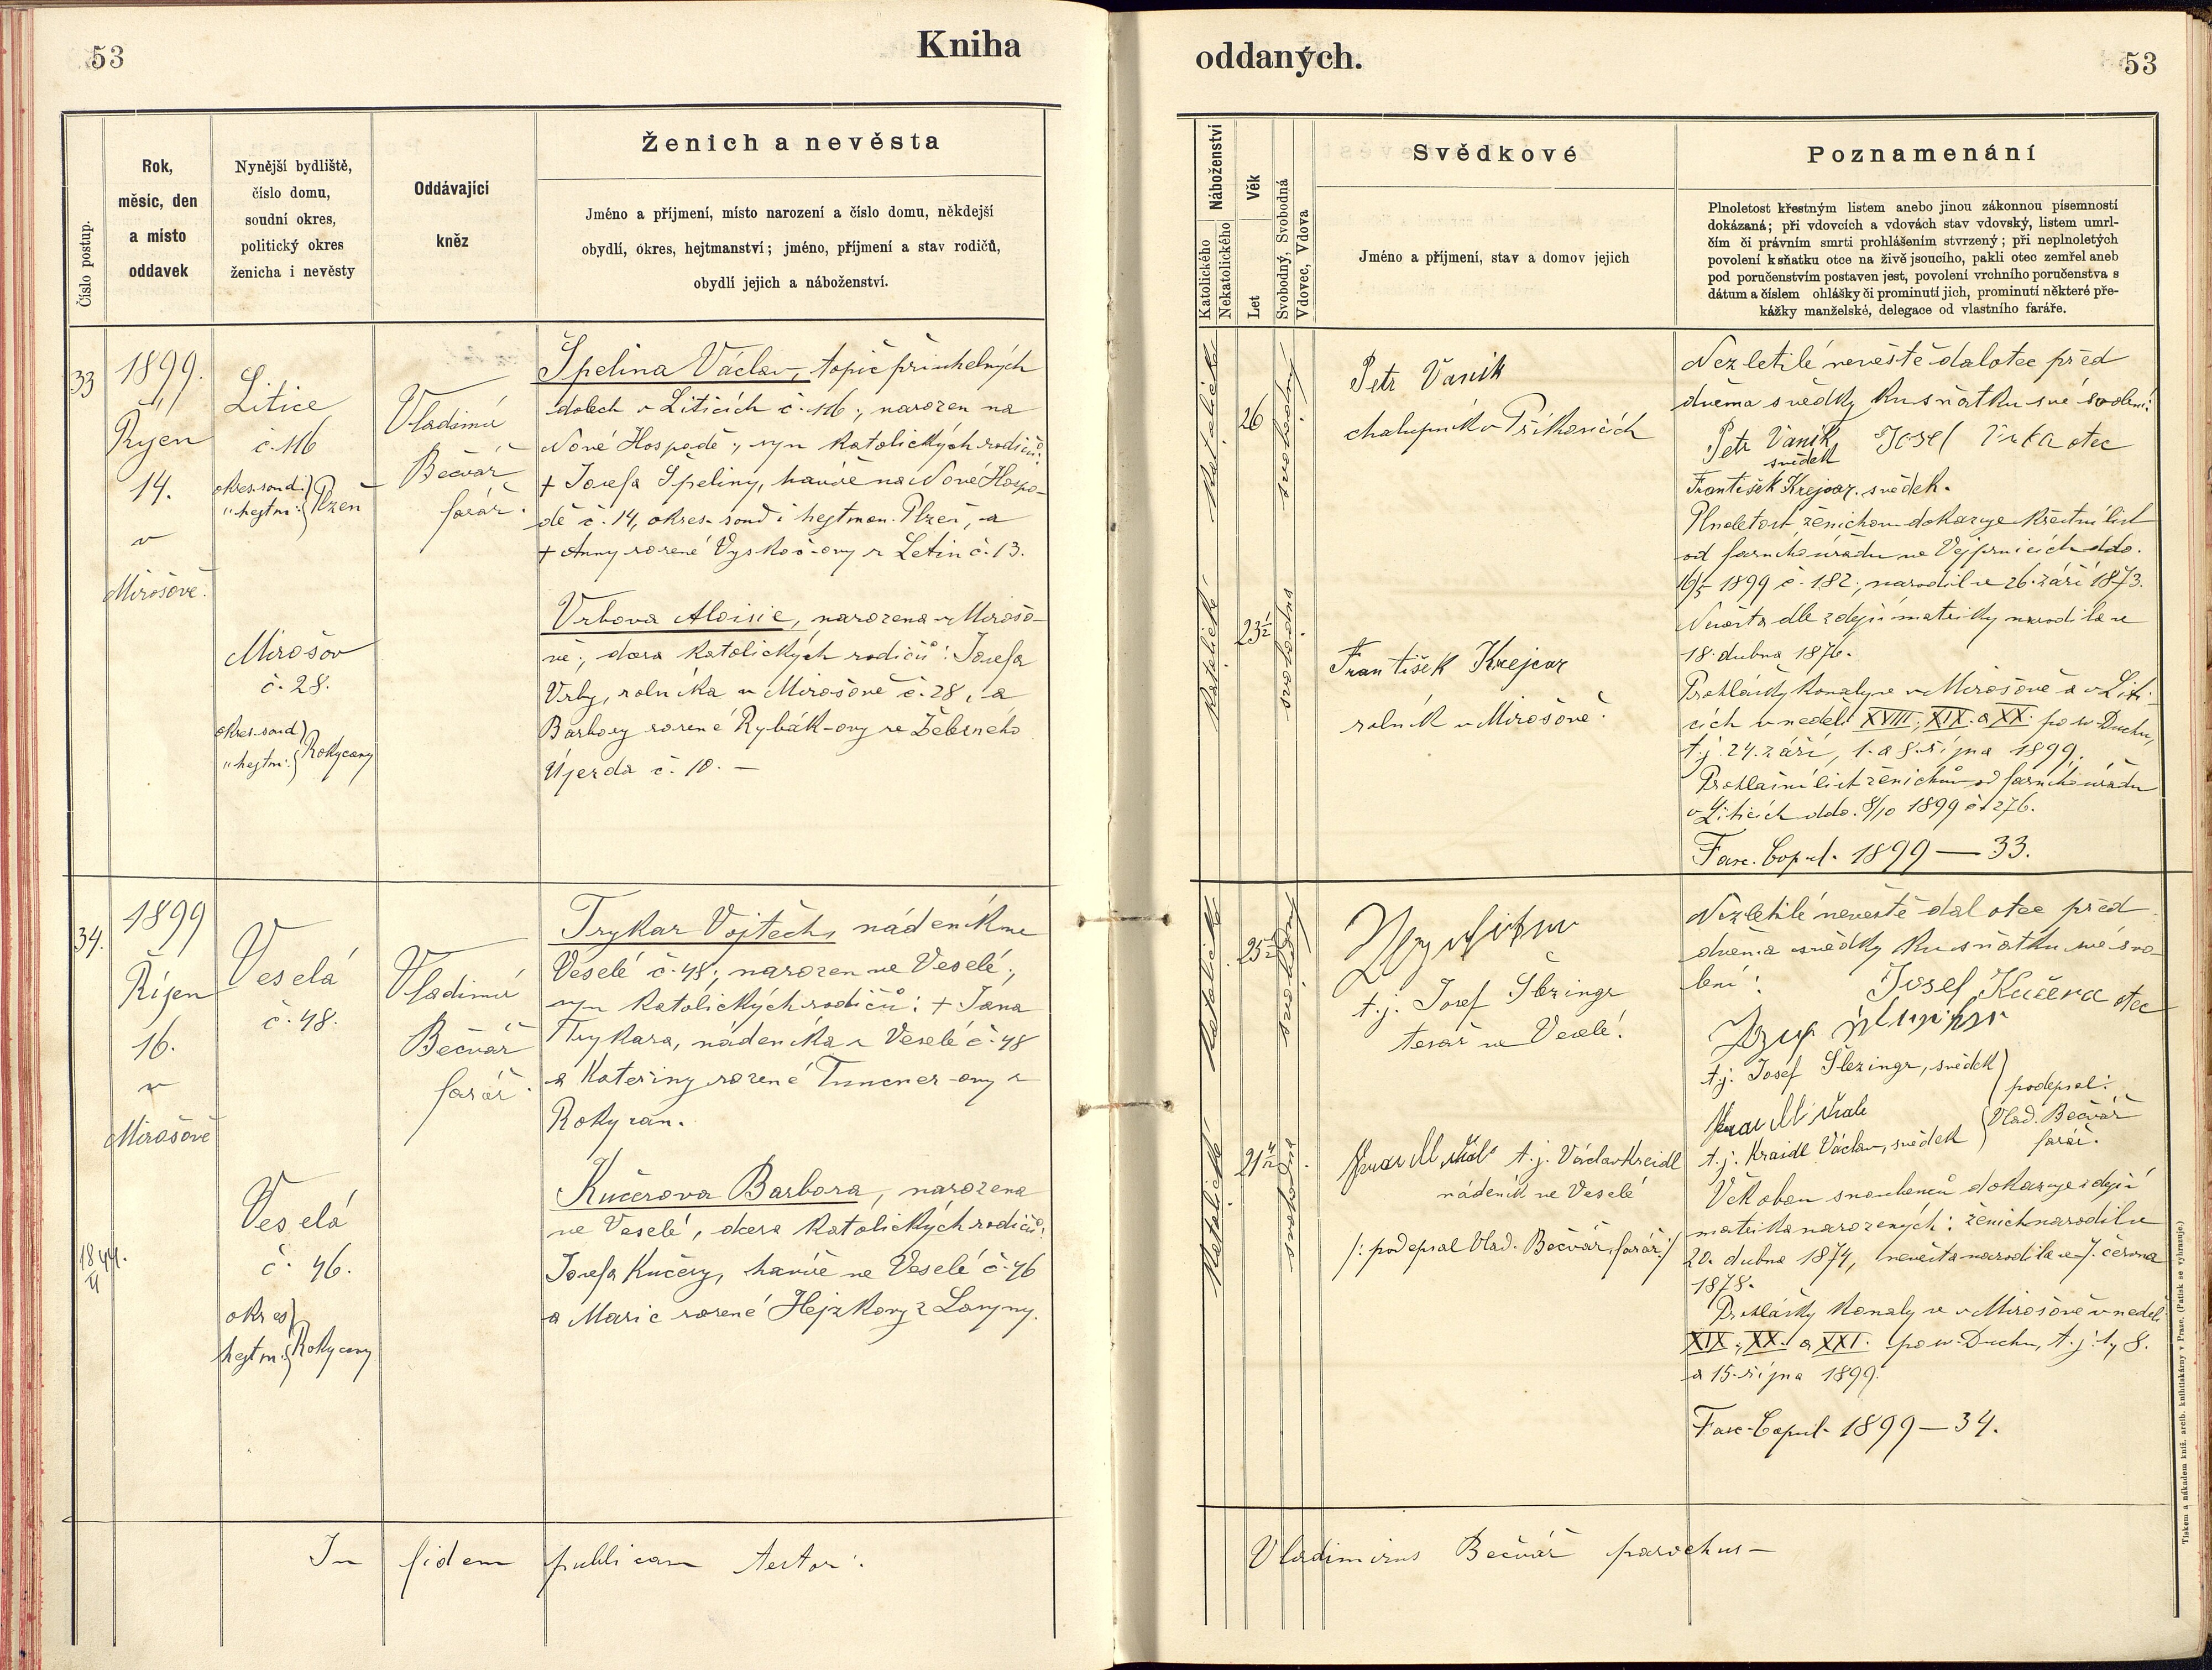 53
Kniha
Číslo postup.
Rok,
měsíc, den
a místo
oddavek
Nynější bydliště,
číslo domu,
soudní okres,
politický okres
ženicha i nevěsty
Oddávající
kněz
Ženich a nevěsta
Jméno a příjmení, místo narození a číslo domu, někdejší
obydlí, okres, hejtmanství; jméno, příjmení a stav rodičů,
obydlí jejich a náboženství.
33
1899.
Říjen
14.
v
Mirošově.
Litice
č. 116
okres. soud. } Plzeň
„ hejtm. }
Mirošov
č. 28.
okres. soud } Rokycany
„ hejtm. }
Vladimír
Bečvář
farář.
Špelina Václav, topič při uhelných
dolech v Liticích č. 116; narozen na
Nové Hospodě; syn katolických rodičů:
+ Josefa Špeliny, havíře na Nové Hospo-
dě č. 14, okres. soud i hejtman. Plzeň, a
+ Anny rozené Vyskoč-ovy z Letin č. 13.
Vrbova Aloisie, narozena v Mirošo-
vě; dcera katolických rodičů: Josefa
Vrby, rolníka v Mirošově č. 28, a
Barbory rozené Rybák-ovy ze Žebrného
Újezda č. 10. —
34.
1899
Říjen
16.
v
Mirošově
Veselá
č. 48.
Veselá
č. 46.
okres } Rokycany
hejtm. }
Vladimír
Bečvář
farář.
Trykar Vojtěch, nádeník ve
Veselé č. 48; narozen ve Veselé;
syn katolických rodičů: + Jana
Trykara, nádeníka z Veselé č. 48
a Kateřiny rozené -ovy z
Rokycan.
Kučerova Barbora, narozena
ve Veselé, dcera katolických rodičů:
Josefa Kučery, havíře ve Veselé č. 46
a Marie rozené Hejzkovy z
In fidem publicam testor:
oddaných.
53
Náboženství
Katolického
Nekatolického
Věk
Let
Svobodný, Svobodná
Vdovec, Vdova
Svědkové
Jméno a příjmení, stav a domov jejich
Poznamenání
Plnoletost křestným listem anebo jinou zákonnou písemností
dokázaná; při vdovcích a vdovách stav vdovský, listem umrl-
čím či právním smrti prohlášením stvrzený; při neplnoletých
povolení k sňatku otce na živě jsoucího, pakli otec zemřel aneb
pod poručenstvím postaven jest, povolení vrchního poručenstva s
dátum a číslem ohlášky či prominutí jich, prominutí některé pře-
kážky manželské, delegace od vlastního faráře.
katolické
26
svobodný
katolické
23½
svobodna
Petr Vaník
chalupník v Příkosicích
František Krejcar
rolník v Mirošově.
Nezletilé nevěstě dal otec před
dvěma svědky ku sňatku své svolení:
Petr Vaník, Josef Vrba otec
svědek
František Krejcar. svědek.
Plnoletost ženichovu dokazuje křestní list
od farního úřadu ve Vejprnicích ddo.
1899 č. 182; narodil se 26. září 1873.
Nevěsta dle zdejší matriky narodila se
18. dubna 1876.
Prohlášky konaly se v Mirošově a v Liti-
cích v neděli XVIII, XIX. a XX. po sv. Duchu,
t. j. 24. září, 1. a 8. října 1899.
Prohlašní list ženichův od farního úřadu
v Liticích ddo. 8/10 1899 č. 276.
Fasc. Copul. 1899 — 33.
katolické
25½
svobodný
katolické
svobodna
t. j. Josef Šlezingr
tesař ve Veselé.
t. j. Václav Kreidl
nádeník ve Veselé
/: podepsal Vlad. Bečvář, farář :/
Nezletilé nevěstě dal otec před
dvěma svědky ku sňatku své svo-
lení: Josef Kučera otec
t. j. Josef Šlezingr, svědek } podepsal:
t. j. Kraidl Václav, svědek } Vlad. Bečvář
farář.
Věk obou snoubenců dokazuje zdejší
matrika narozených: ženich narodil se
20. dubna 1874, nevěsta narodila se 7. června
1878.
Prohlášky konaly se v Mirošově v neděli
XIX., XX. a XXI. po sv. Duchu, t. j. 1., 8.
a 15. října 1899.
Fasc. Copul. 1899 — 34.
Vladimirus Bečvář parochus —
Tiskem a nákladem kníž. arcib. knihtiskárny v Praze. (Patisk se vyhrazuje.)